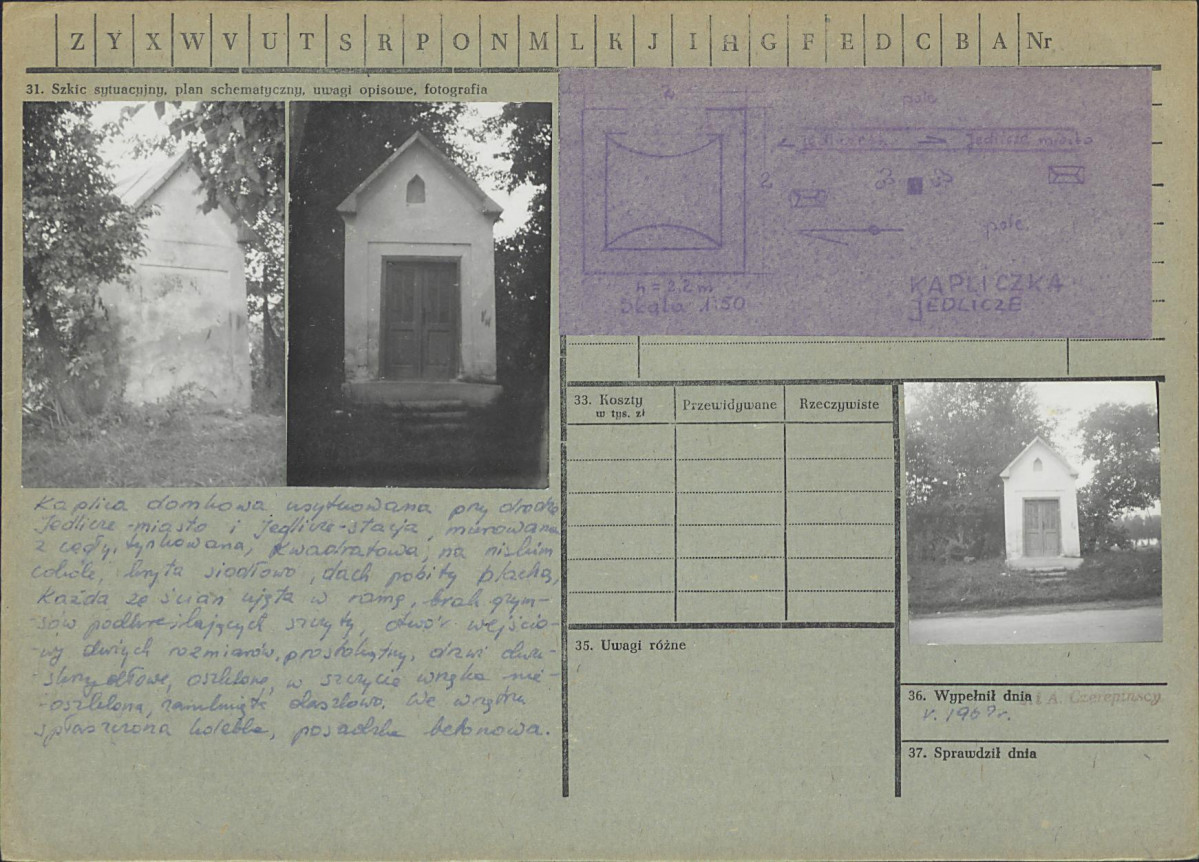 Z Y X W V U T S R P O N M L K J I H G F E D C B A Nr
31. Szkic sytuacyjny, plan schematyczny, uwagi opisowe, fotografia
pole
Jedlicze miasto
2
pole
h = 2,2 m
Skala 1:50
KAPLICZKA
JEDLICZE
Kaplica domkowa usytuowana przy drodze
Jedlicze-miasto i Jedlicze-stacja, murowana
z cegły, tynkowana, kwadratowa, na niskim
cokole, kryta siodłowo, dach pobity blachą,
Każda ze ścian ujęta w ramę, brak gzym-
-sów podkreślających szczyty, otwór wejścio-
-wy dużych rozmiarów, prostokątny, drzwi dwu-
-skrzydłowe, oszklone, w szczycie wnęka nie-
-oszklona, zamknięta daszkowo. We wnętrzu
spłaszczona kolebka, posadzka betonowa.
33. Koszty
w tys. zł
Przewidywane
Rzeczywiste
35. Uwagi różne
36. Wypełnił dnia
A. Czerepińscy
r. 1967r.
37. Sprawdził dnia